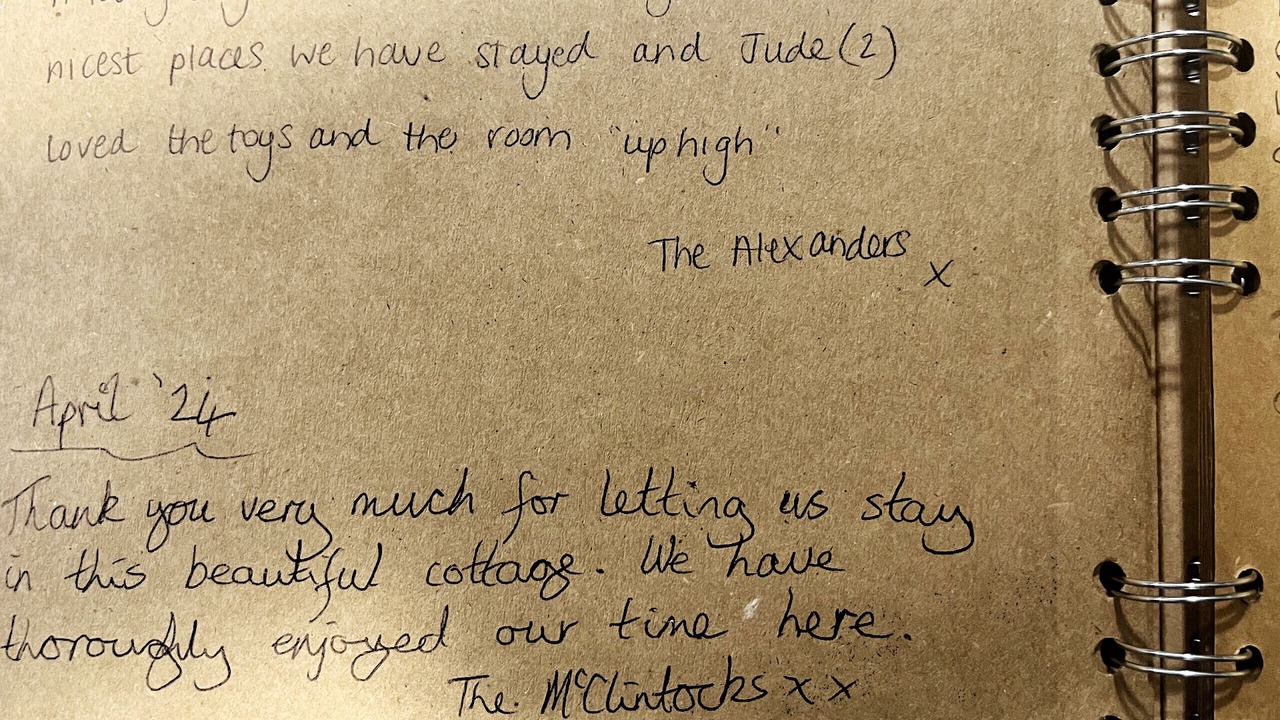 nicest places we have stayed and Jude (2)
loved the toys and the room "up high"
The Alexanders
x
April '24
Thank you very much for letting us stay
in this beautiful cottage. We have
thoroughly enjoyed our time here.
The McClintocks x x